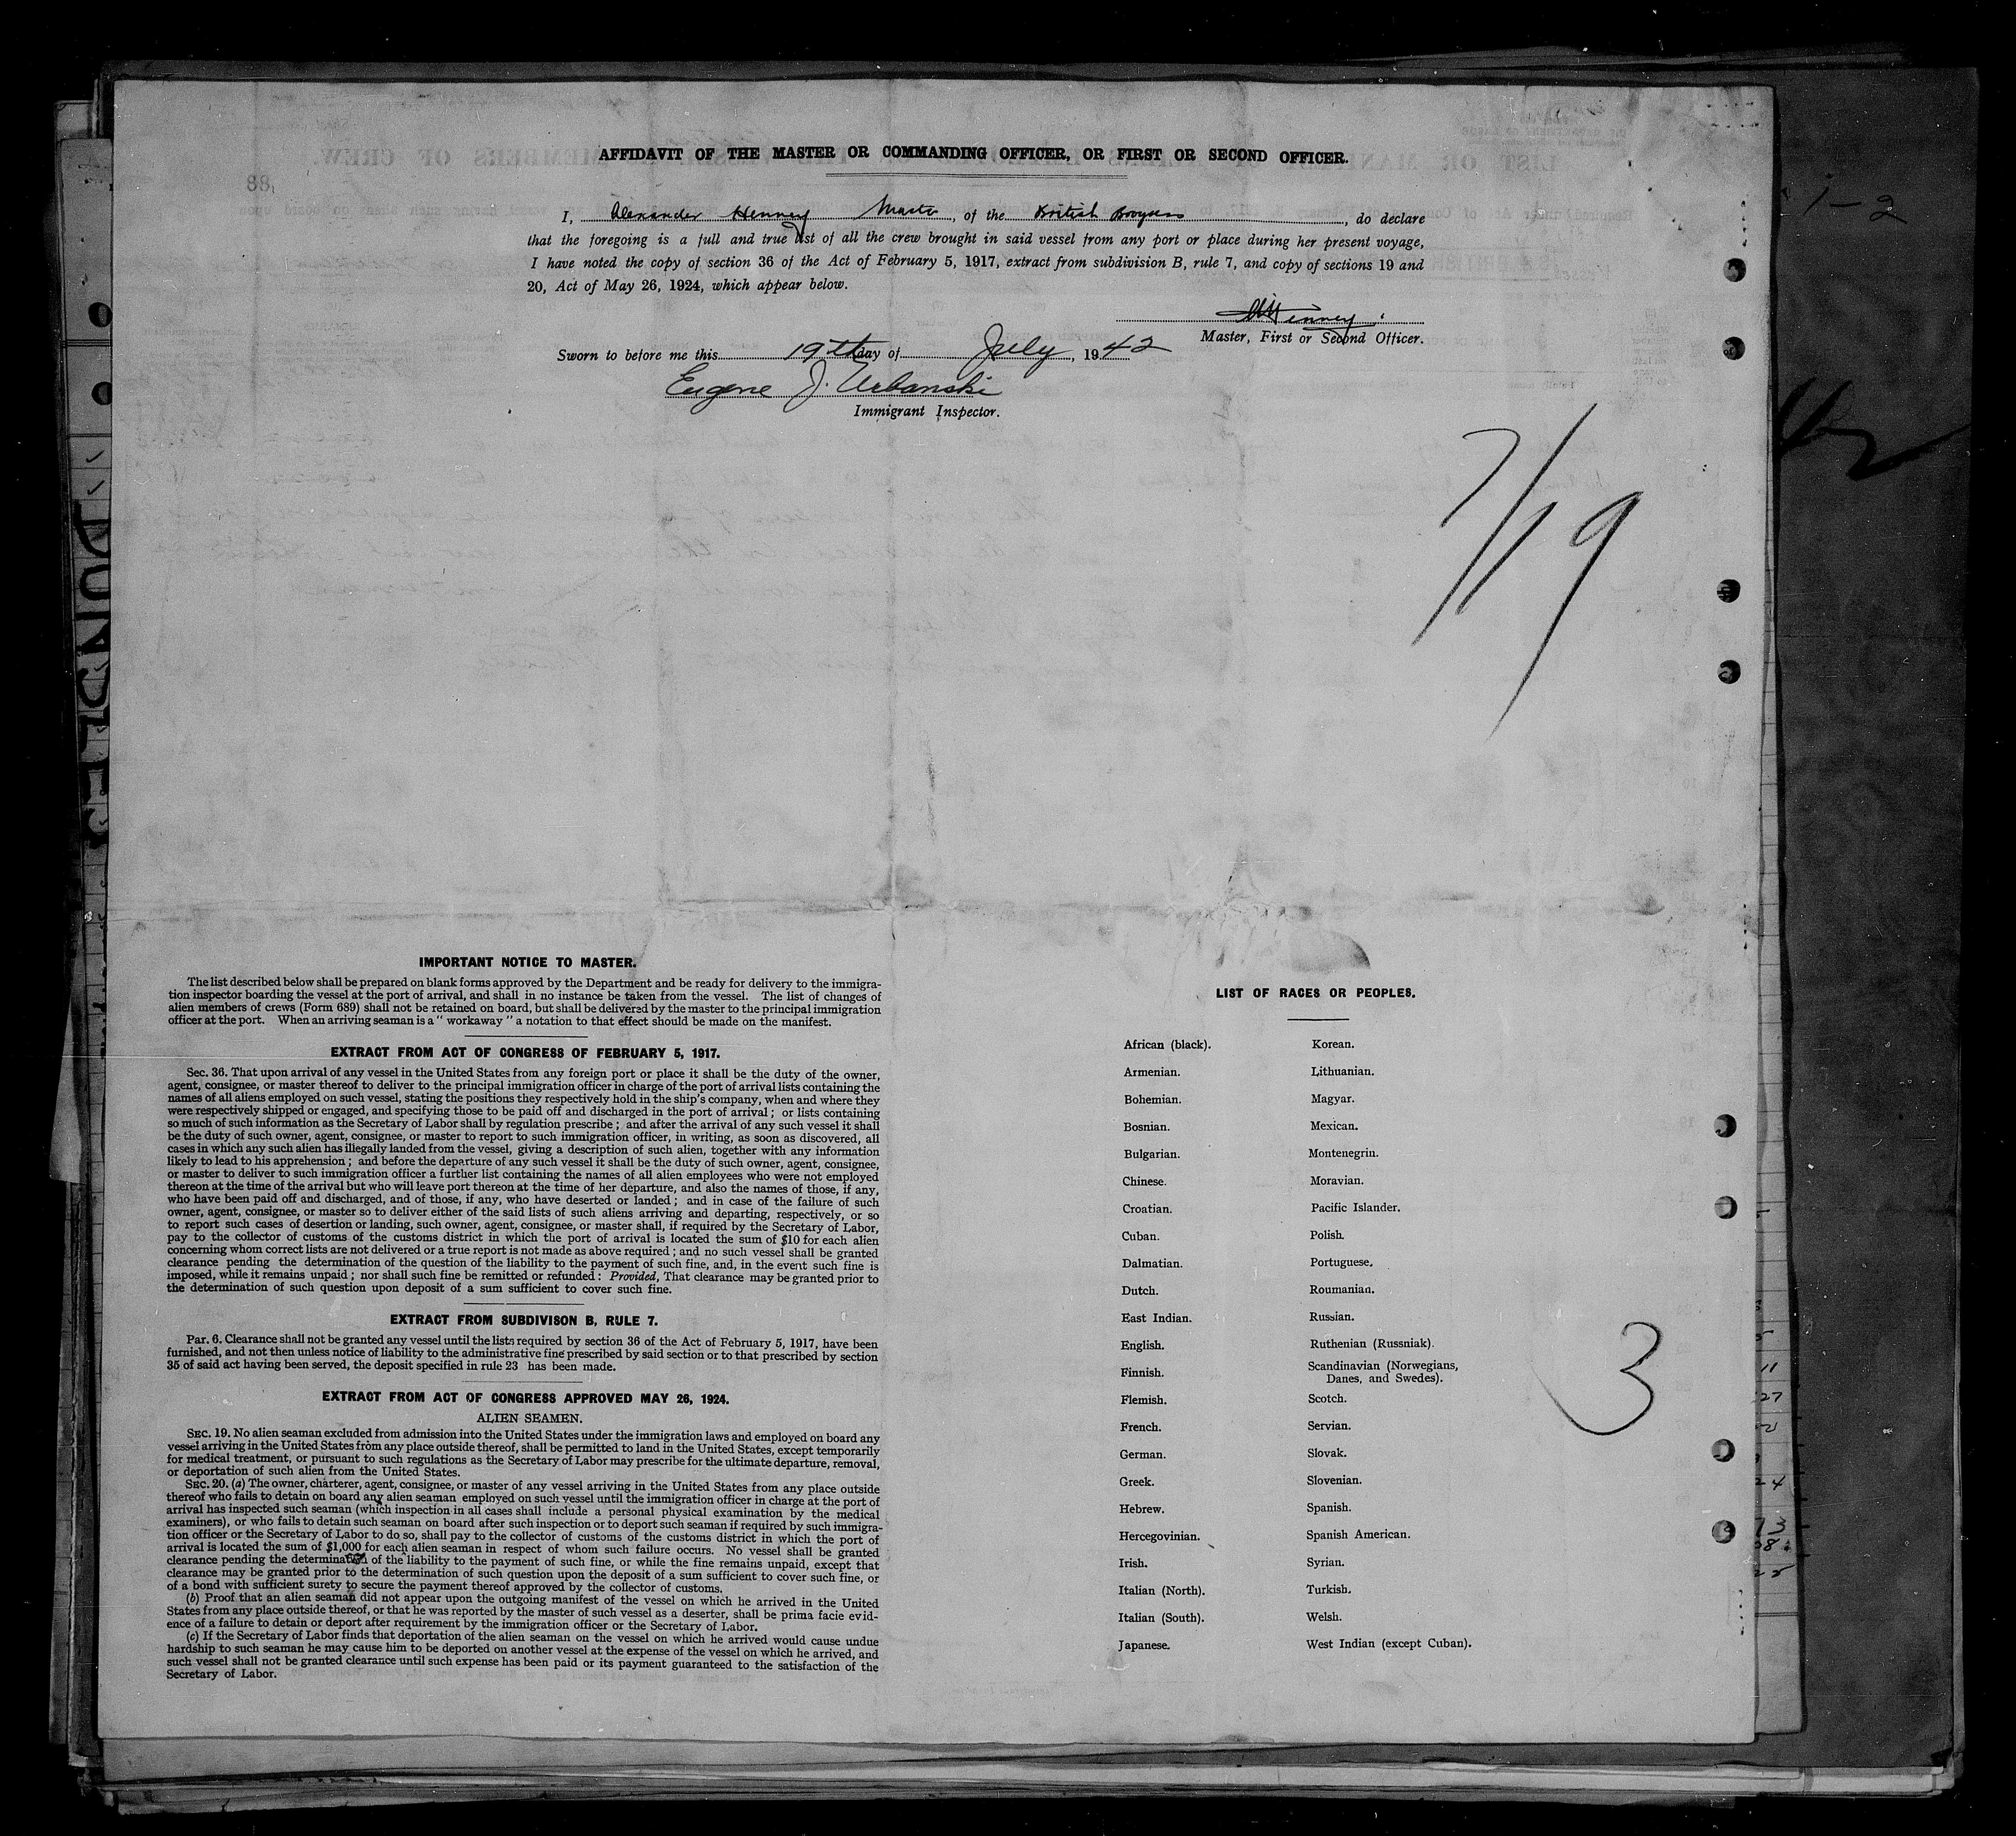 AFFIDAVIT OF THE MASTER OR COMMANDING OFFICER, OR FIRST OR SECOND OFFICER.
88
I, Alexander Henney Master, of the British, do declare
that the foregoing is a full and true list of all the crew brought in said vessel from any port or place during her present voyage,
I have noted the copy of section 36 of the Act of February 5, 1917, extract from subdivision B, rule 7, and copy of sections 19 and
20, Act of May 26, 1924, which appear below.
Henney
Master, First or Second Officer.
Sworn to before me this 19th day of July, 1942
Eugene J. Urbanski
Immigrant Inspector.
7/19
1-2
42
DUNDEE
IMPORTANT NOTICE TO MASTER.
The list described below shall be prepared on blank forms approved by the Department and be ready for delivery to the immigra-
tion inspector boarding the vessel at the port of arrival, and shall in no instance be taken from the vessel. The list of changes of
alien members of crews (Form 689) shall not be retained on board, but shall be delivered by the master to the principal immigration
officer at the port. When an arriving seaman is a "workaway" a notation to that effect should be made on the manifest.
EXTRACT FROM ACT OF CONGRESS OF FEBRUARY 5, 1917.
Sec. 36. That upon arrival of any vessel in the United States from any foreign port or place it shall be the duty of the owner,
agent, consignee, or master thereof to deliver to the principal immigration officer in charge of the port of arrival lists containing the
names of all aliens employed on such vessel, stating the positions they respectively hold in the ship's company, when and where they
were respectively shipped or engaged, and specifying those to be paid off and discharged in the port of arrival; or lists containing
so much of such information as the Secretary of Labor shall by regulation prescribe; and after the arrival of any such vessel it shall
be the duty of such owner, agent, consignee, or master to report to such immigration officer, in writing, as soon as discovered, all
cases in which any such alien has illegally landed from the vessel, giving a description of such alien, together with any information
likely to lead to his apprehension; and before the departure of any such vessel it shall be the duty of such owner, agent, consignee,
or master to deliver to such immigration officer a further list containing the names of all alien employees who were not employed
thereon at the time of the arrival but who will leave port thereon at the time of her departure, and also the names of those, if any,
who have been paid off and discharged, and of those, if any, who have deserted or landed; and in case of the failure of such
owner, agent, consignee, or master so to deliver either of the said lists of such aliens arriving and departing, respectively, or so
to report such cases of desertion or landing, such owner, agent, consignee, or master shall, if required by the Secretary of Labor,
pay to the collector of customs of the customs district in which the port of arrival is located the sum of $10 for each alien
concerning whom correct lists are not delivered or a true report is not made as above required; and no such vessel shall be granted
clearance pending the determination of the question of the liability to the payment of such fine, and, in the event such fine is
imposed, while it remains unpaid; nor shall such fine be remitted or refunded: Provided, That clearance may be granted prior to
the determination of such question upon deposit of a sum sufficient to cover such fine.
EXTRACT FROM SUBDIVISON B, RULE 7.
Par. 6. Clearance shall not be granted any vessel until the lists required by section 36 of the Act of February 5, 1917, have been
furnished, and not then unless notice of liability to the administrative fine prescribed by said section or to that prescribed by section
35 of said act having been served, the deposit specified in rule 23 has been made.
EXTRACT FROM ACT OF CONGRESS APPROVED MAY 26, 1924.
ALIEN SEAMEN.
SEC. 19. No alien seaman excluded from admission into the United States under the immigration laws and employed on board any
vessel arriving in the United States from any place outside thereof, shall be permitted to land in the United States, except temporarily
for medical treatment, or pursuant to such regulations as the Secretary of Labor may prescribe for the ultimate departure, removal,
or deportation of such alien from the United States.
SEC. 20. (a) The owner, charterer, agent, consignee, or master of any vessel arriving in the United States from any place outside
thereof who fails to detain on board any alien seaman employed on such vessel until the immigration officer in charge at the port of
arrival has inspected such seaman (which inspection in all cases shall include a personal physical examination by the medical
examiners), or who fails to detain such seaman on board after such inspection or to deport such seaman if required by such immigra-
tion officer or the Secretary of Labor to do so, shall pay to the collector of customs of the customs district in which the port of
arrival is located the sum of $1,000 for each alien seaman in respect of whom such failure occurs. No vessel shall be granted
clearance pending the determination of the liability to the payment of such fine, or while the fine remains unpaid, except that
clearance may be granted prior to the determination of such question upon the deposit of a sum sufficient to cover such fine, or
of a bond with sufficient surety to secure the payment thereof approved by the collector of customs.
(b) Proof that an alien seaman did not appear upon the outgoing manifest of the vessel on which he arrived in the United
States from any place outside thereof, or that he was reported by the master of such vessel as a deserter, shall be prima facie evid-
ence of a failure to detain or deport after requirement by the immigration officer or the Secretary of Labor.
(c) If the Secretary of Labor finds that deportation of the alien seaman on the vessel on which he arrived would cause undue
hardship to such seaman he may cause him to be deported on another vessel at the expense of the vessel on which he arrived, and
such vessel shall not be granted clearance until such expense has been paid or its payment guaranteed to the satisfaction of the
Secretary of Labor.
LIST OF RACES OR PEOPLES.
African (black).
Armenian.
Bohemian.
Bosnian.
Bulgarian.
Chinese.
Croatian.
Cuban.
Dalmatian.
Dutch.
East Indian.
English.
Finnish.
Flemish.
French.
German.
Greek.
Hebrew.
Hercegovinian.
Irish.
Italian (North).
Italian (South).
Japanese.
Korean.
Lithuanian.
Magyar.
Mexican.
Montenegrin.
Moravian.
Pacific Islander.
Polish.
Portuguese.
Roumanian.
Russian.
Ruthenian (Russniak).
Scandinavian (Norwegians,
Danes, and Swedes).
Scotch.
Servian.
Slovak.
Slovenian.
Spanish.
Spanish American.
Syrian.
Turkish.
Welsh.
West Indian (except Cuban).
3
11
27
24